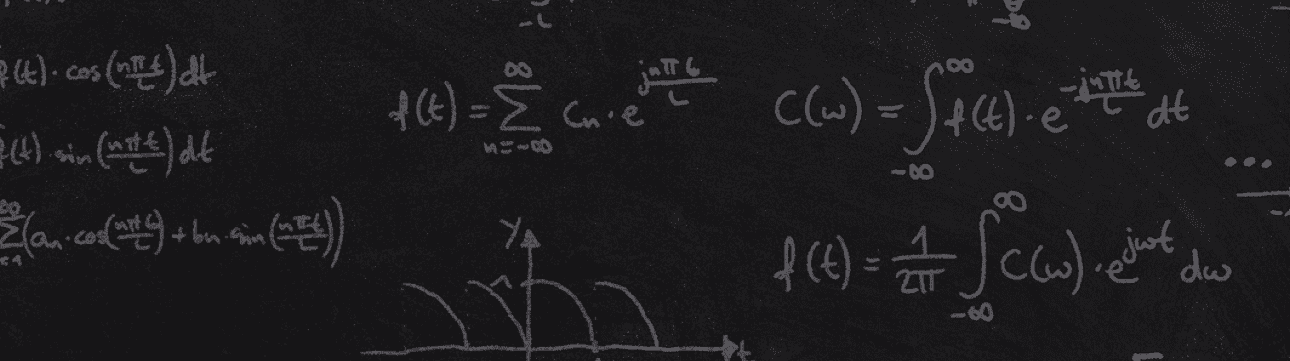 f(t) · cos(nπt/L) dt
f(t) · sin(nπt/L) dt
∞
∑(an · cos(nπt/L) + bn · sin(nπt/L))
-L
f(t) = ∑ n=-∞ ∞ cn · e^(jnπt/L)
Y
1
t
-∞
C(ω) = ∫ -∞ ∞ f(t) · e^(-jnπt/L) dt
f(t) = 1/2π ∫ -∞ ∞ C(ω) · e^(jωt) dω
...